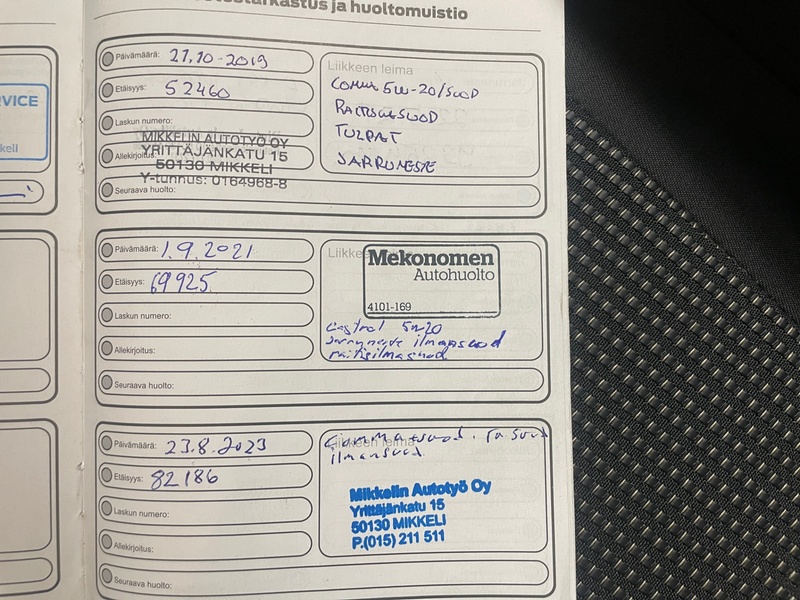 tarkastus ja huoltomuistio
VICE
keli
Päivämäärä: 21.10-2019
Etäisyys: 52460
Laskun numero:
Allekirjoitus:
MIKKELIN AUTOTYÖ OY
YRITTÄJÄNKATU 15
50130 MIKKELI
Y-tunnus: 0164968-8
Seuraava huolto:
Liikkeen leima
COMMA 5W-20/SUOD
RAITISILMASUOD
TULPAT
JARRUNESTE
Päivämäärä: 1.9.2021
Etäisyys: 69925
Laskun numero:
Allekirjoitus:
Seuraava huolto:
Liikkee
Mekonomen
Autohuolto
4101-169
Castrol 5w20
Jarruneste ilmansuod
raitisilmasuod
Päivämäärä: 23.8.2023
Etäisyys: 82186
Laskun numero:
Allekirjoitus:
Seuraava huolto:
Liikkeen leima
Comma
ilmansuod.
Mikkelin Autotyö Oy
Yrittäjänkatu 15
50130 MIKKELI
P.(015) 211 511